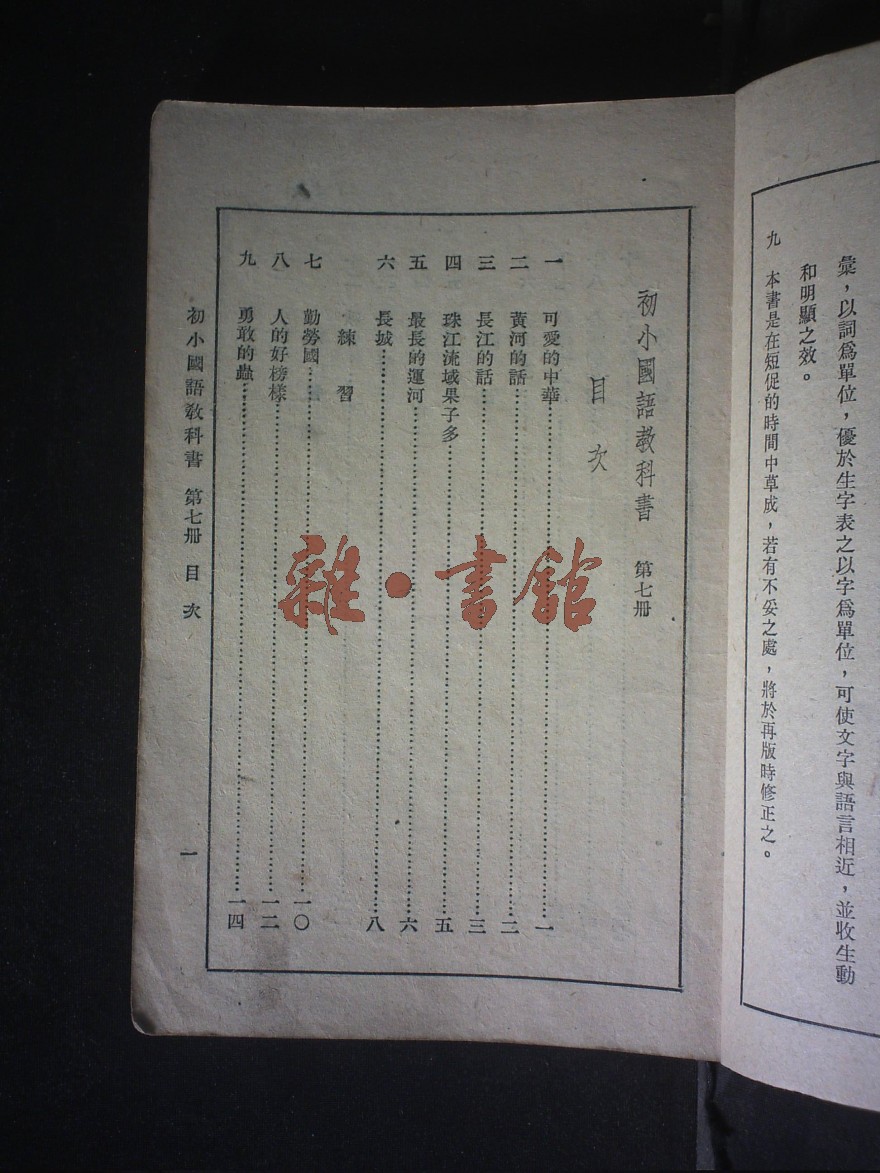 彙，以詞爲單位，優於生字表之以字爲單位，可使文字與語言相近，並收生動
和明顯之效。
九　本書是在短促的時間中草成，若有不妥之處，將於再版時修正之。
初小國語教科書　第七册
目次
一　可愛的中華……一
二　黃河的話……二
三　長江的話……三
四　珠江流域果子多……五
五　最長的運河……六
六　長城……八
練習
七　勤勞國……一〇
八　人的好榜樣……一二
九　勇敢的蟲……一四
初小國語教科書　第七册　目次
一
雜·書館